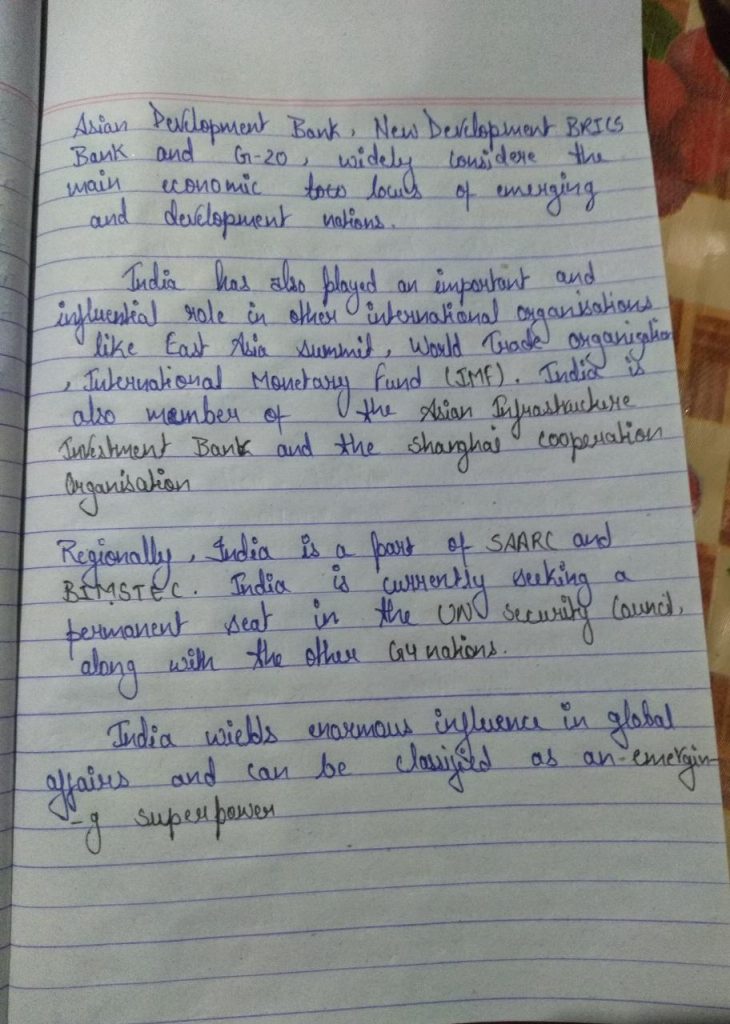 Asian Development Bank, New Development BRICS
Bank and G-20, widely considere the
main economic toco locus of emerging
and development nations.
India has also played an important and
influential role in other international organisations
like East Asia summit, World Trade organization
, International Monetary Fund (IMF). India is
also member of the Asian Infrastructure
Investment Bank and the Shanghai cooperation
Organisation
Regionally, India is a part of SAARC and
BIMSTEC. India is currently seeking a
permanent seat in the UN security Council,
along with the other G4 nations.
India wields enarmous influence in global
affairs and can be classified as an emergin-
-g superpower